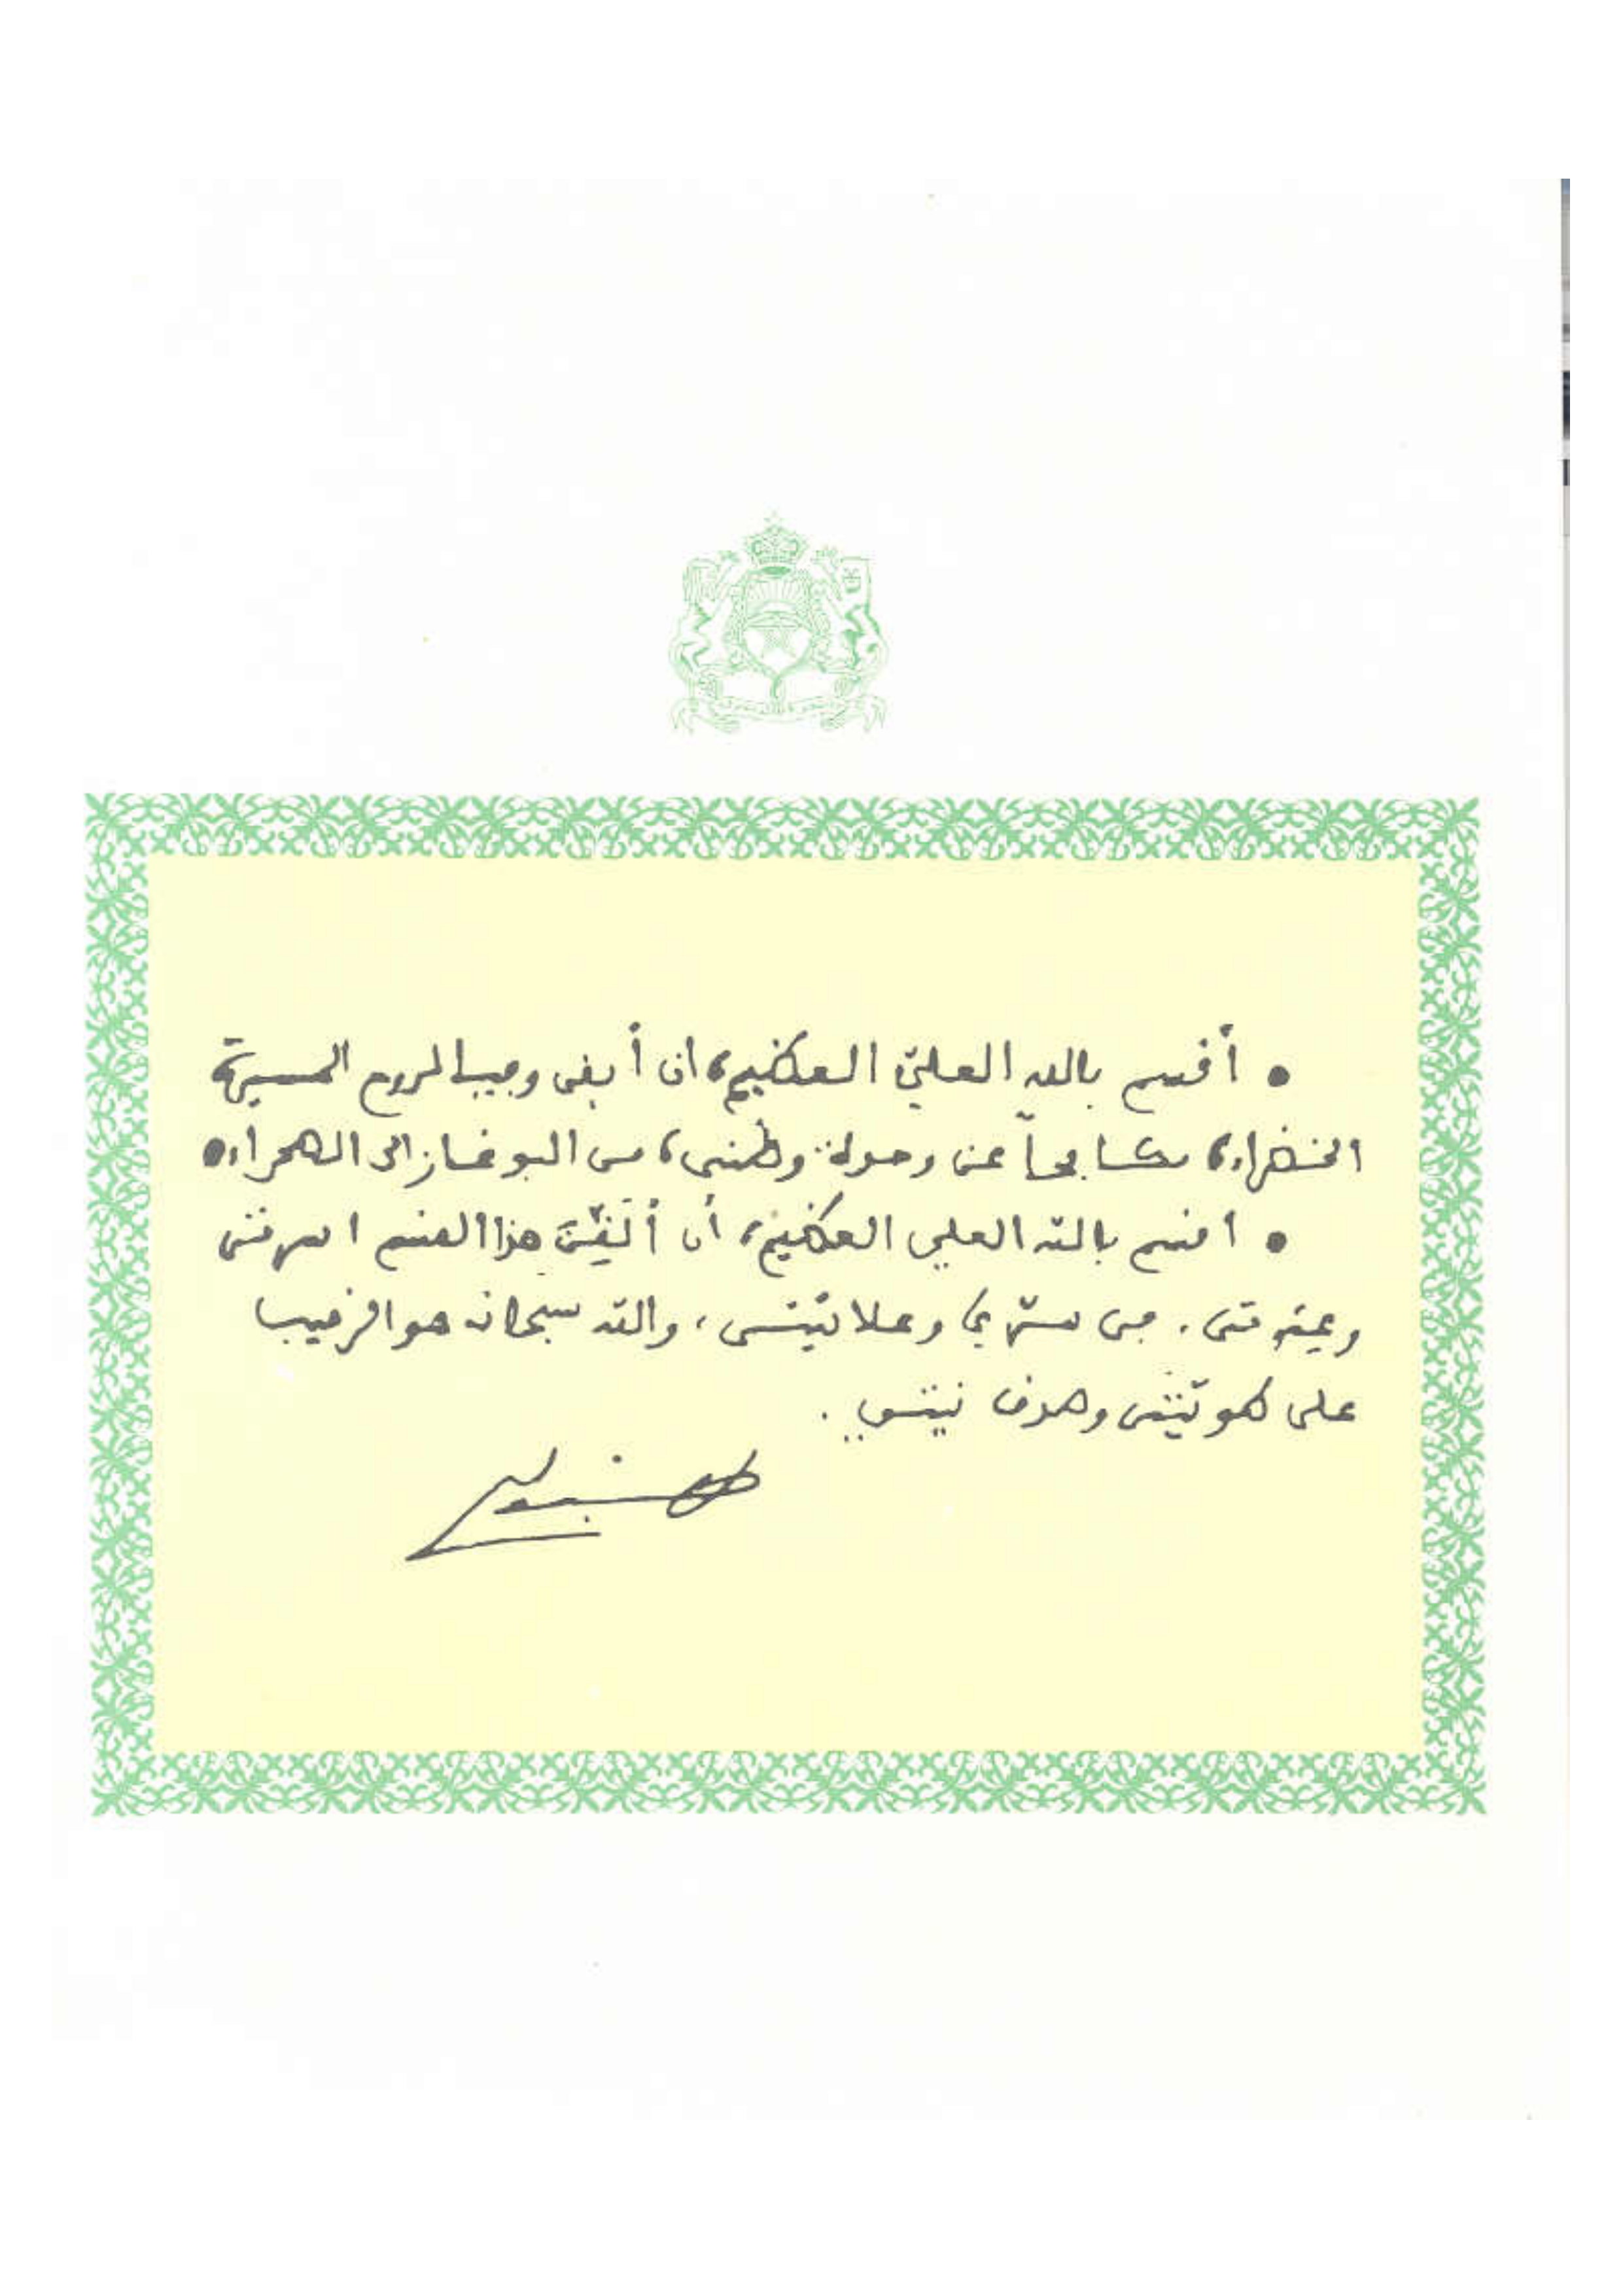 • أقسم بالله العليّ العظيم، ان أبقى وفيا لروح المسيرة
الخضراء، مكافحاً عن وحدة وطني، من البوغاز الى الصحراء.
• اقسم بالله العلي العظيم، أن أُلَقِّنَ هذا القسم اسرتي
وعترتي. في سرّي وعلانيّتي، والله سبحانه هو الرقيب
على طويّتي وصدق نيتي.